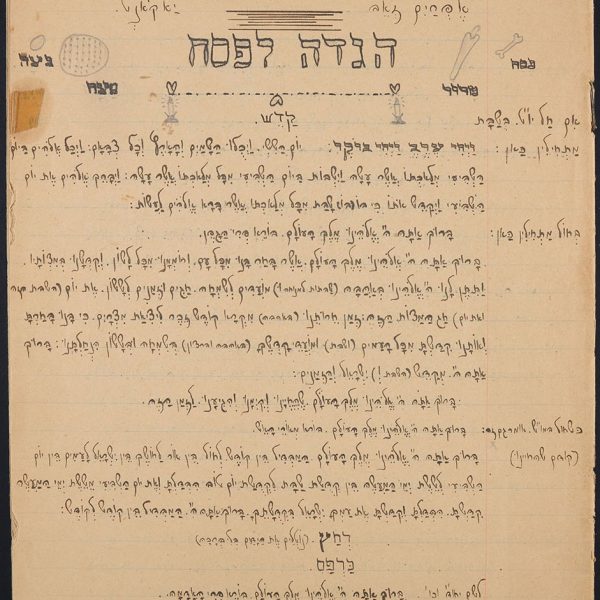 אפרים זאב יאקאנט
הגדה לפסח
ביצה
מצה
מרור
פסח
קַדֵשׁ
אם חל יו"ט בשבת
מתחילין כאן: ויהי ערב ויהי בקר יום הששי. ויכלו השמים והארץ וכל צבאם: ויכל אלהים ביום
השביעי מלאכתו אשר עשה וישבות ביום השביעי מכל מלאכתו אשר עשה: ויברך אלהים את יום
השביעי ויקדש אותו כי בו שבת מכל מלאכתו אשר ברא אלהים לעשות:
בחול מתחילין כאן: ברוך אתה ה' אלהינו מלך העולם. בורא פרי הגפן.
ברוך אתה ה' אלהינו מלך העולם. אשר בחר בנו מכל עם. ורוממנו מכל לשון. וקדשנו במצותיו.
ותתן לנו ה' אלהינו באהבה (שבתות למנוחה ו) מועדים לשמחה. חגים וזמנים לששון. את יום (השבת הזה
ואת יום) חג המצות הזה. זמן חרותנו (באהבה) מקרא קודש זכר ליציאת מצרים. כי בנו בחרת
ואותנו קדשת מכל העמים (ושבת) ומועדי קדשך (באהבה וברצון) בשמחה ובששון הנחלתנו: ברוך
אתה ה'. מקדש (השבת ו) ישראל והזמנים:
ברוך אתה ה' אלהינו מלך העולם. שהחינו וקימנו והגיענו. לזמן הזה.
ברוך אתה ה' אלהינו מלך העולם. בורא מאורי האש.
(קודם שהחיינו) ברוך אתה ה' אלהינו מלך העולם. המבדיל בין קודש לחול בין אור לחושך בין ישראל לעמים בין יום
השביעי לששת ימי המעשה בין קדושת שבת לקדושת יום טוב הבדלת ואת יום השביעי מששת ימי המעשה
קדשת. הבדלת וקדשת את עמך ישראל בקדושתך. ברוך אתה ה'. המבדיל בין קודש לקודש:
רחץ
כרפס
ברוך אתה ה' אלהינו מלך העולם. בורא פרי האדמה.